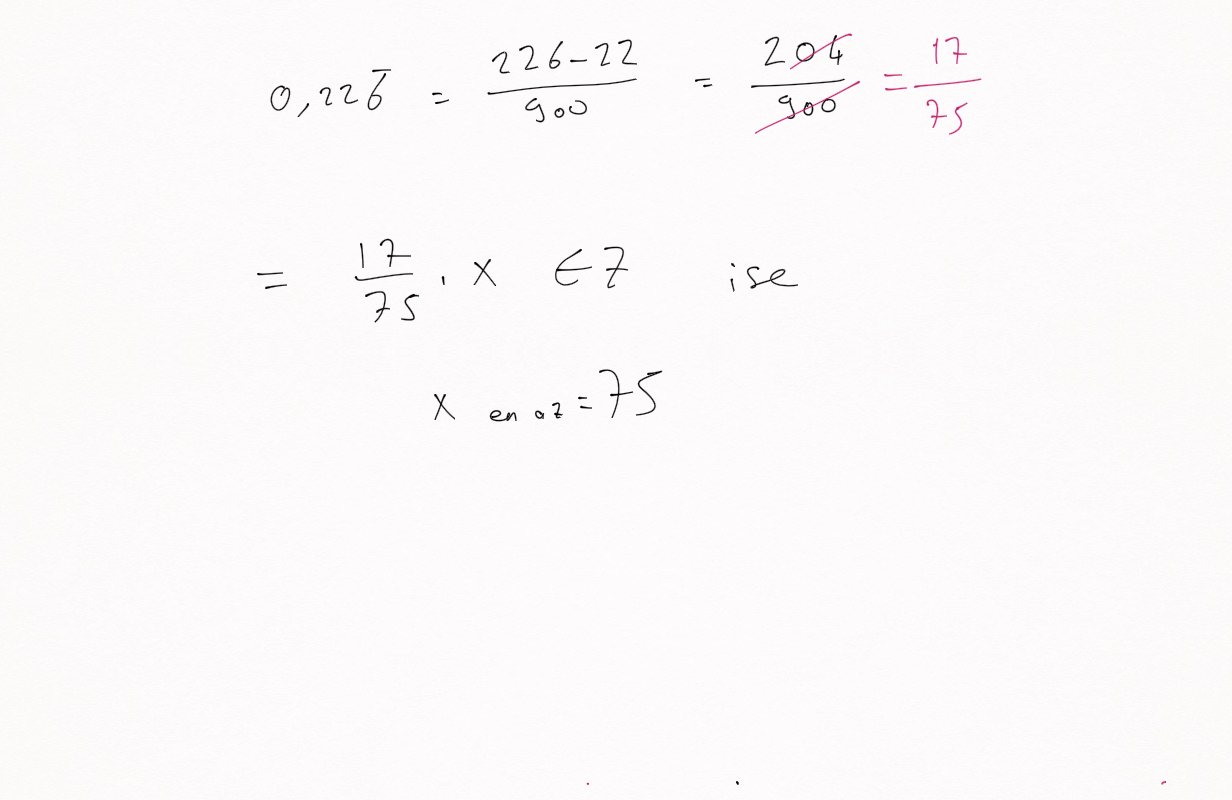 0,226̅ = 226-22/900 = 204/900 = 17/75
= 17/75 . x ∈ Z ise
x en az = 75